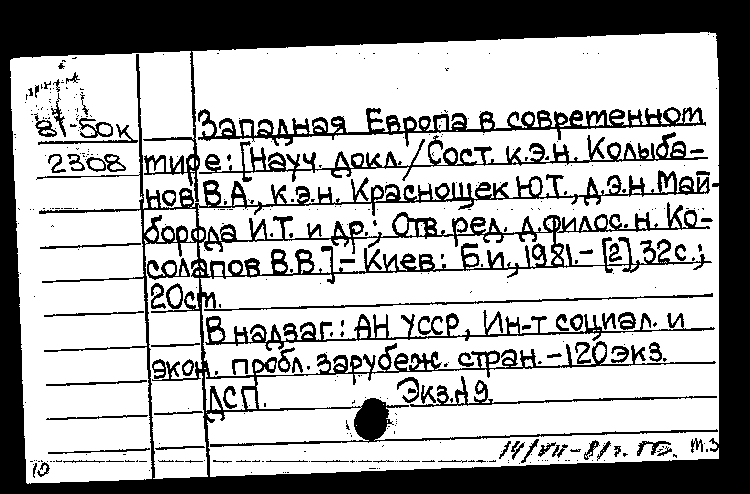 81-50к Западная Европа в современном
2308 мире: [Науч. докл./Сост. к.э.н. Колыба-
нов В.А., к.э.н. Краснощек Ю.Т., д.э.н. Май-
борода И.Т. и др.; Отв. ред. д.филос.н. Ко-
солапов В.В.].- Киев: Б.и., 1981.- [2], 32с.;
20см.
В надзаг.: АН УССР, Ин-т социал. и
экон. пробл. зарубеж. стран. -120экз.
ДСП. Экз.№9.
14/VII-81г.
10